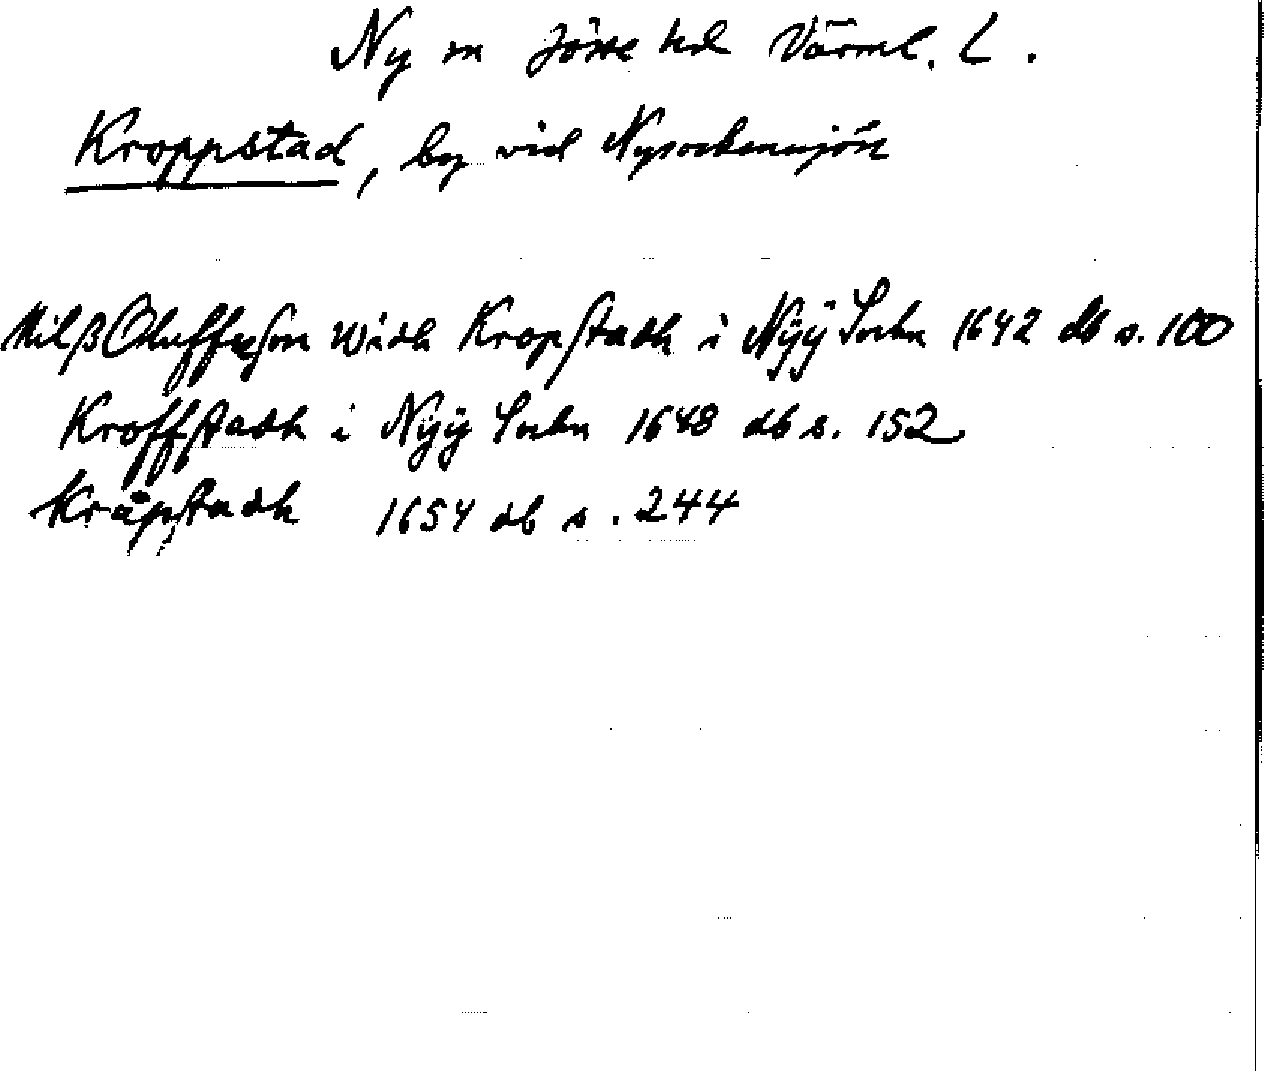 Ny sn Jösse hd Värml. L.
Kroppstad, by vid Nysockensjön
Nilß Oluffzson widh Kropstadh i Nÿÿ Sockn 1642 db s. 100
Kroffstadh i Nÿÿ Sockn 1648 db s. 152
Kråpstadh 1654 db s. 244